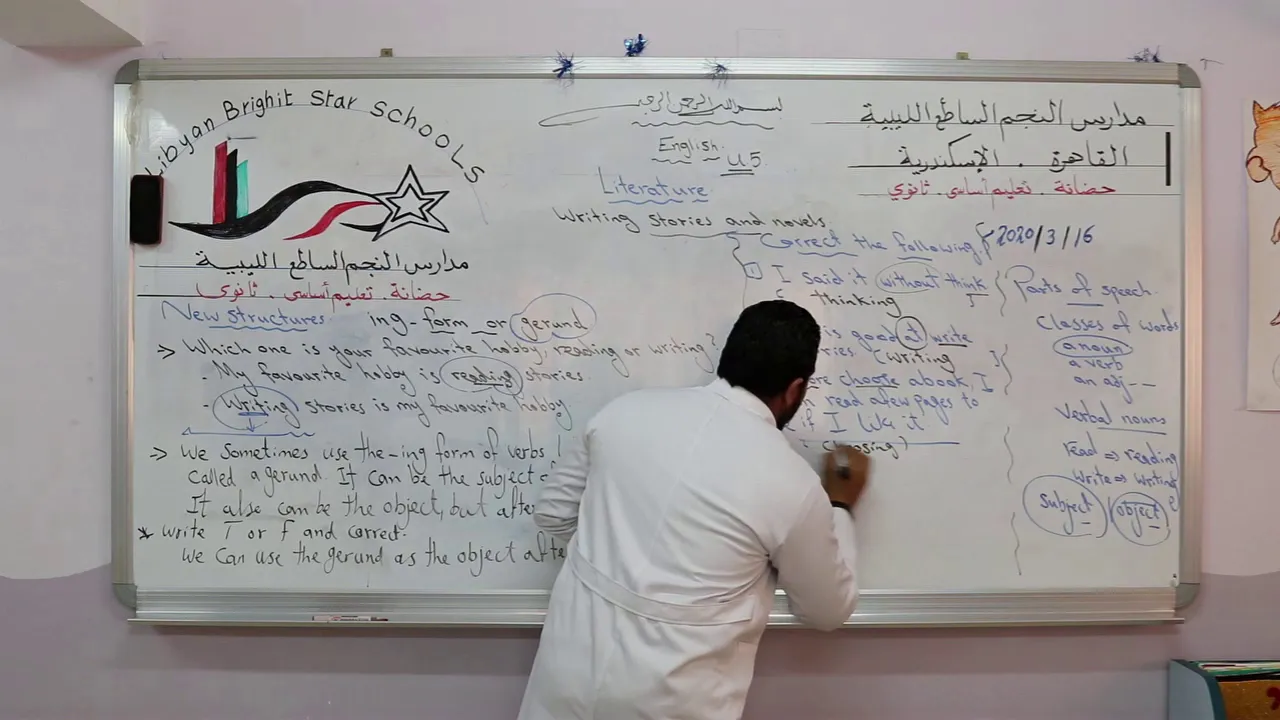 Libyan Brighit Star SchooLS
مدارس النجم الساطع الليبية
حضانة . تعليم أساسى . ثانوي
بسم الله الرحمن الرحيم
English
U5
Literature
Writing stories and novels
مدارس النجم الساطع الليبية
القاهرة . الإسكندرية
حضانة . تعليم أساسى . ثانوي
2020/3/16
New structures ing-form or gerund
Which one is your favourite hobby, reading or writing?
- My favourite hobby is reading stories.
- Writing stories is my favourite hobby
We Sometimes use the -ing form of verbs
Called a gerund. It can be the subject
It also can be the object, but after
* write T or F and correct.
We can use the gerund as the object after
Correct the following
1 I said it without think
thinking
is good at write
(writing
choose a book, I
read a few pages to
if I like it
(choosing)
Parts of speech
Classes of words
a noun
a verb
an adj --
Verbal nouns
read => reading
write => writing
Subject / object